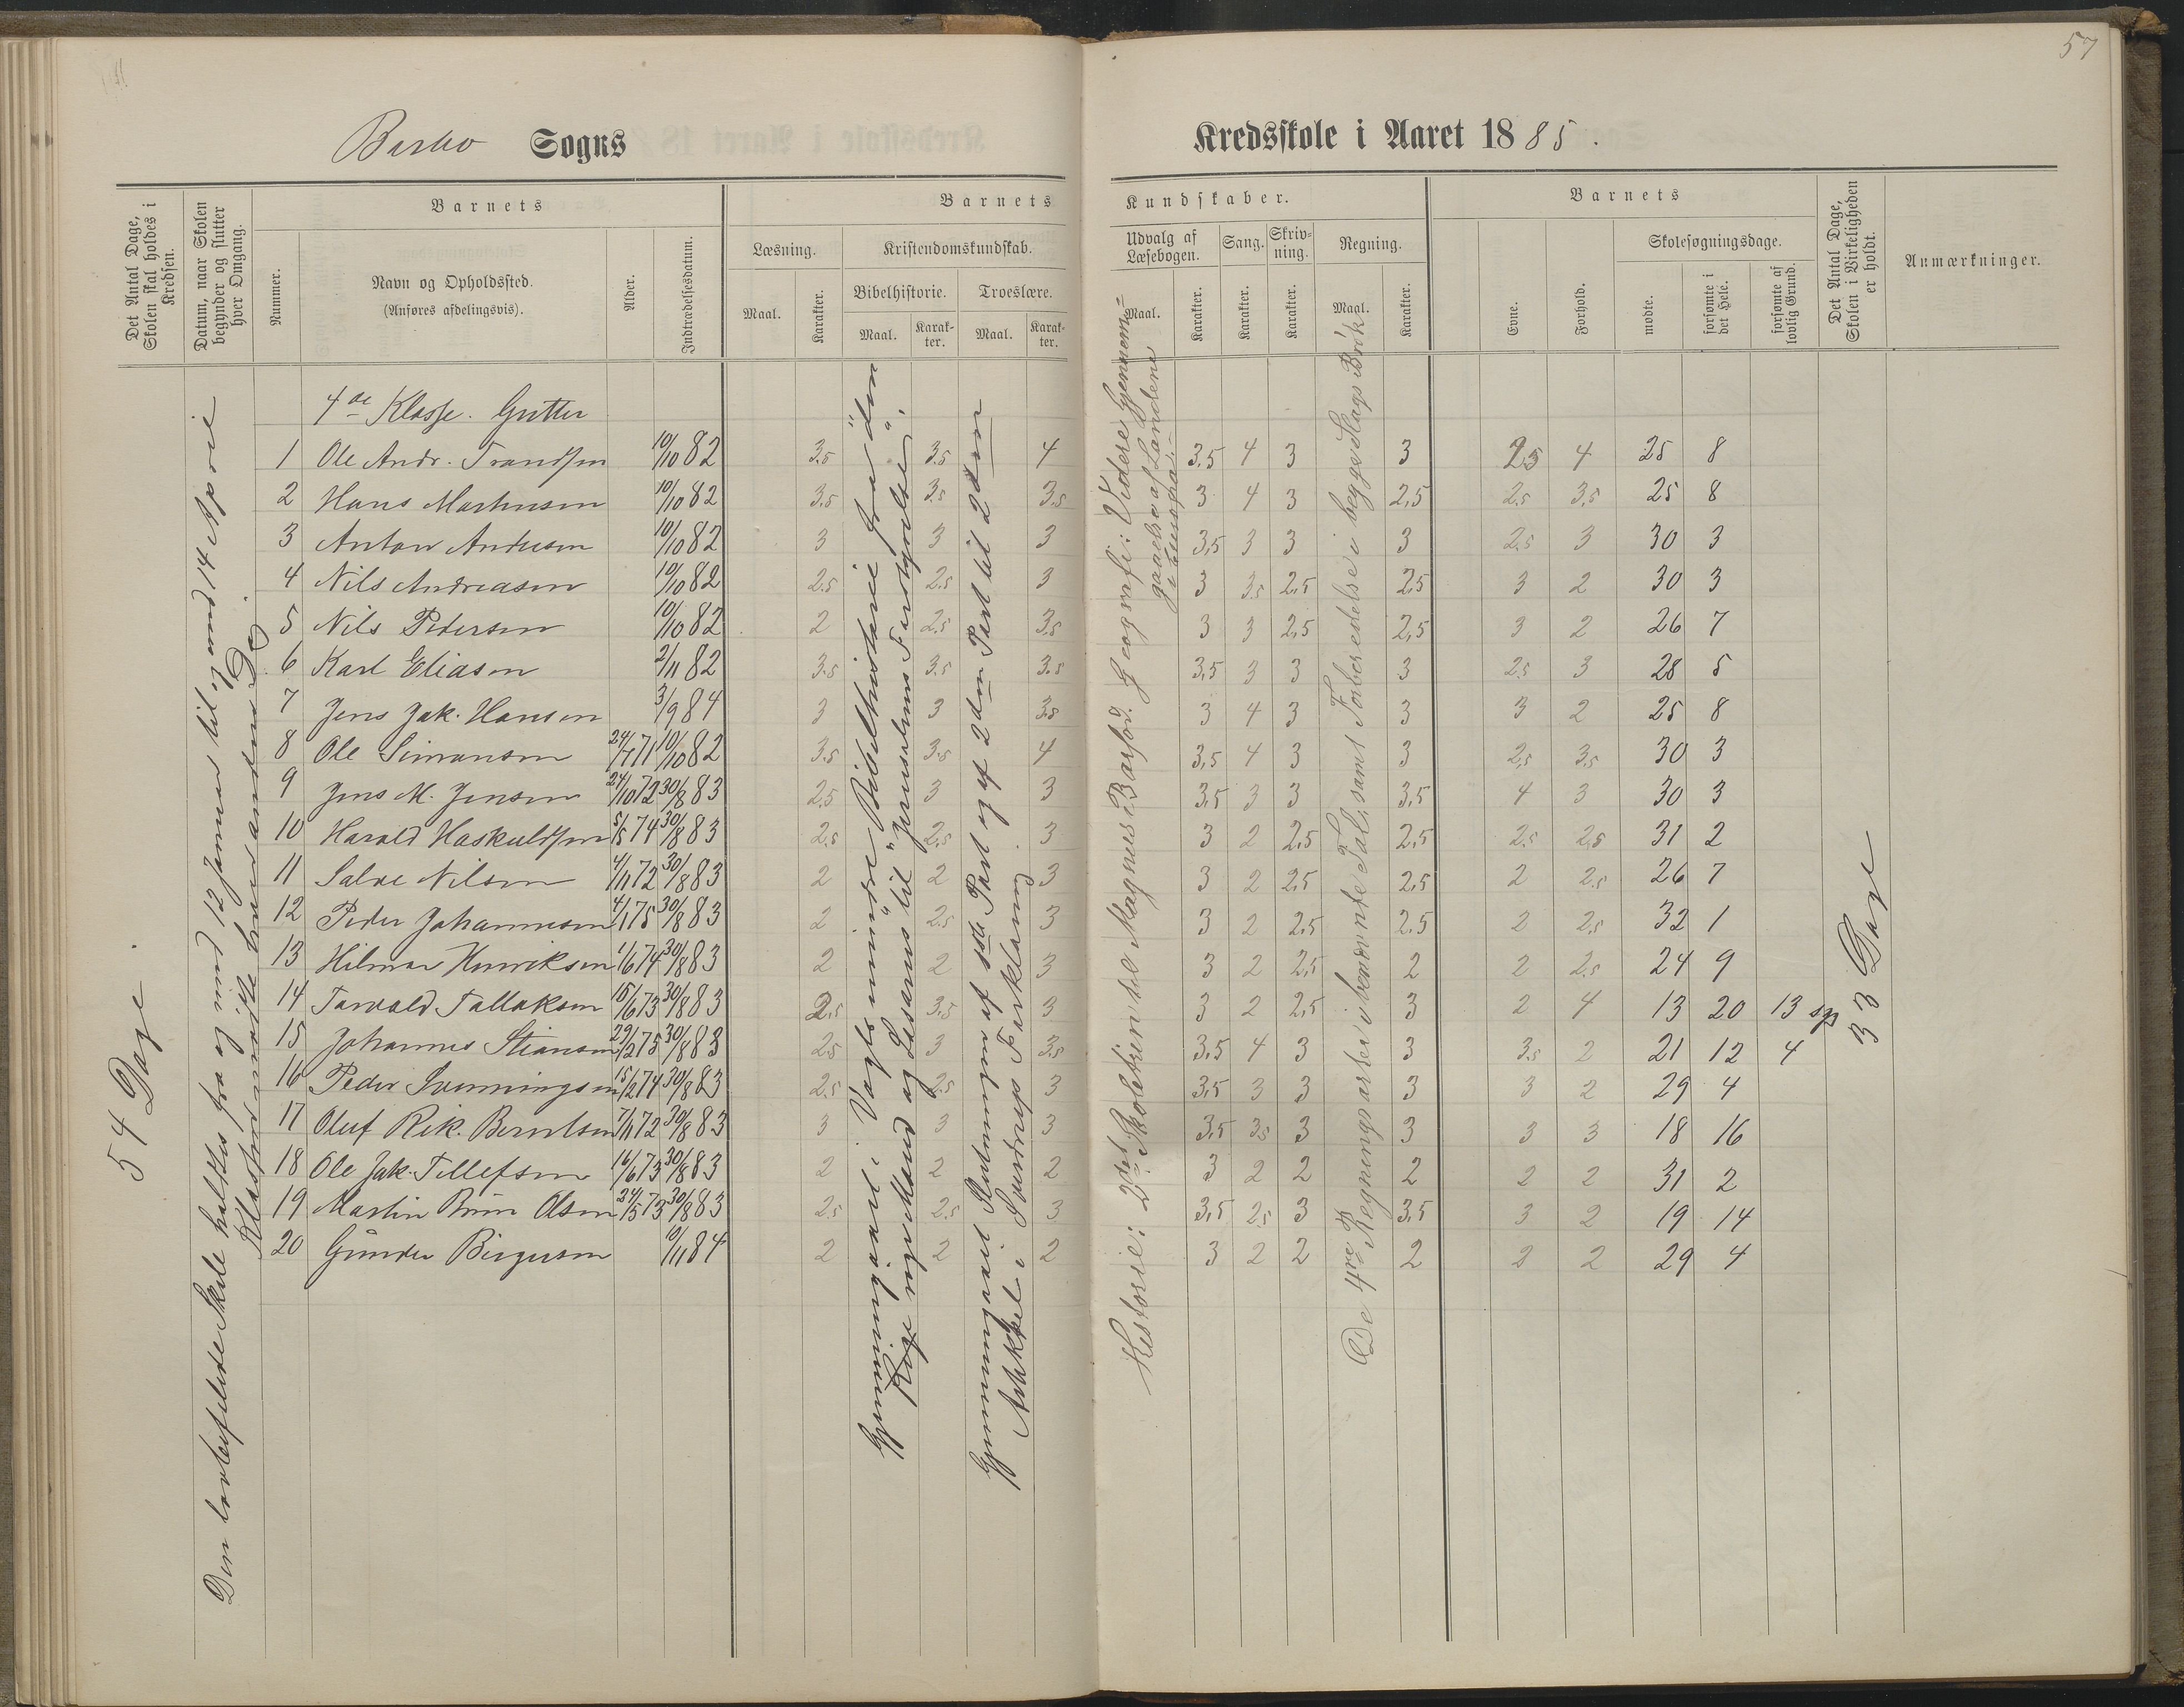 57
Barbo Sogns
Kredsskole i Aaret 1885.
Det Antal Dage, Skolen skal holdes i Kredsen.
Datum, naar Skolen begynder og slutter hver Omgang.
Barnets
Nummer.
Navn og Opholdssted.
(Anføres afdelingsvis).
Alder.
Indtrædelsesdatum.
Barnets
Læsning.
Maal.
Karakter.
Kristendomskundskab.
Bibelhistorie.
Maal.
Karakter.
Troeslære.
Maal.
Karakter.
Kundskaber.
Udvalg af Læsebogen.
Maal.
Karakter.
Sang.
Karakter.
Skrivning.
Karakter.
Regning.
Maal.
Karakter.
Barnets
Evne.
Forhold.
Skolesøgningsdage.
mødte.
forsømte i det Hele.
forsømte af lovlig Grund.
Det Antal Dage, Skolen i Virkeligheden er holdt.
Anmærkninger.
54 Dage.
fra og med 12 Januar til og med 14 April
Klassen mødte hver anden Dag.
Gjennemgaaet i Vogts mindre Bibelhistorie fra "den
Rige og Lasarus" til "Jerusalems Forstyrrelse".
Gjennemgaaet Slutningen af 1ste Part og af 2den Part til 2den
Artikkel i Sverdrups Forklaring
Historie: 2det Skoletrin
Geografi: Videre Gjennemgaaelse af Landene
i Europa.
De 4re Regningsarter i benævnte Tal, samt Forberedelse i begge Slags Brøk
33 Dage
4de Klasse. Gutter
1 Ole Andr. Trondsen 10/10 82 3.5 3.5 4 3.5 4 3 3 2.5 4 25 8
2 Hans Martinsen 10/10 82 3.5 3.5 3.5 3 4 3 2,5 2.5 3.5 25 8
3 Anton Andersen 10/10 82 3 3 3 3,5 3 3 3 2.5 3 30 3
4 Nils Andreasen 10/10 82 2.5 2.5 3 3 3.5 2,5 2,5 3 2 30 3
5 Nils Pedersen 10/10 82 2 2.5 3.5 3 3 2,5 2,5 3 2 26 7
6 Karl Eliasen 2/11 82 3.5 3.5 3.5 3,5 3 3 3 2.5 3 28 5
7 Jens Jak. Hansen 3/9 84 3 3 3.5 3 4 3 3 3 2 25 8
8 Ole Simonsen 24/7 71 10/10 82 3.5 3.5 4 3,5 4 3 3 2,5 3.5 30 3
9 Jens M. Jensen 24/10 72 30/8 83 2.5 3 3 3,5 3 3 3,5 4 3 30 3
10 Harald Haskuldsen 5/5 74 30/8 83 2.5 2.5 3 3 2 2,5 2,5 2.5 2,5 31 2
11 Salve Nilsen 4/11 72 30/8 83 2 2 3 3 2 2,5 2,5 2 2.5 26 7
12 Peder Johannesen 4/1 75 30/8 83 2 2.5 3 3 2 2,5 2.5 2 2,5 32 1
13 Hilmar Henriksen 1/6 74 30/8 83 2 2 3 3 2 2,5 2 2 2.5 24 9
14 Torvald Tallaksen 15/6 73 30/8 83 2.5 3.5 3 3 2 2,5 3 2 4 13 20 13 syg
15 Johannes Stiansen 29/2 75 30/8 83 2.5 3 3.5 3.5 4 3 3 3.5 2 21 12 4
16 Peder Svenningsen 15/2 74 30/8 83 2.5 2.5 3 3,5 3 3 3 3 2 29 4
17 Oluf Rik. Berntsen 7/11 72 30/8 83 3 3 3 3,5 3.5 3 3 3 3 18 16
18 Ole Jak. Tellefsen 16/6 73 30/8 83 2 2 2 3 2 2 2 2 2 31 2
19 Martin Olsen 24/5 73 30/8 83 2.5 2.5 3 3,5 2.5 3 3,5 3 2 19 14
20 Gunder Birgersen 10/11 84 2 2 2 3 2 2 2 2 2 29 4